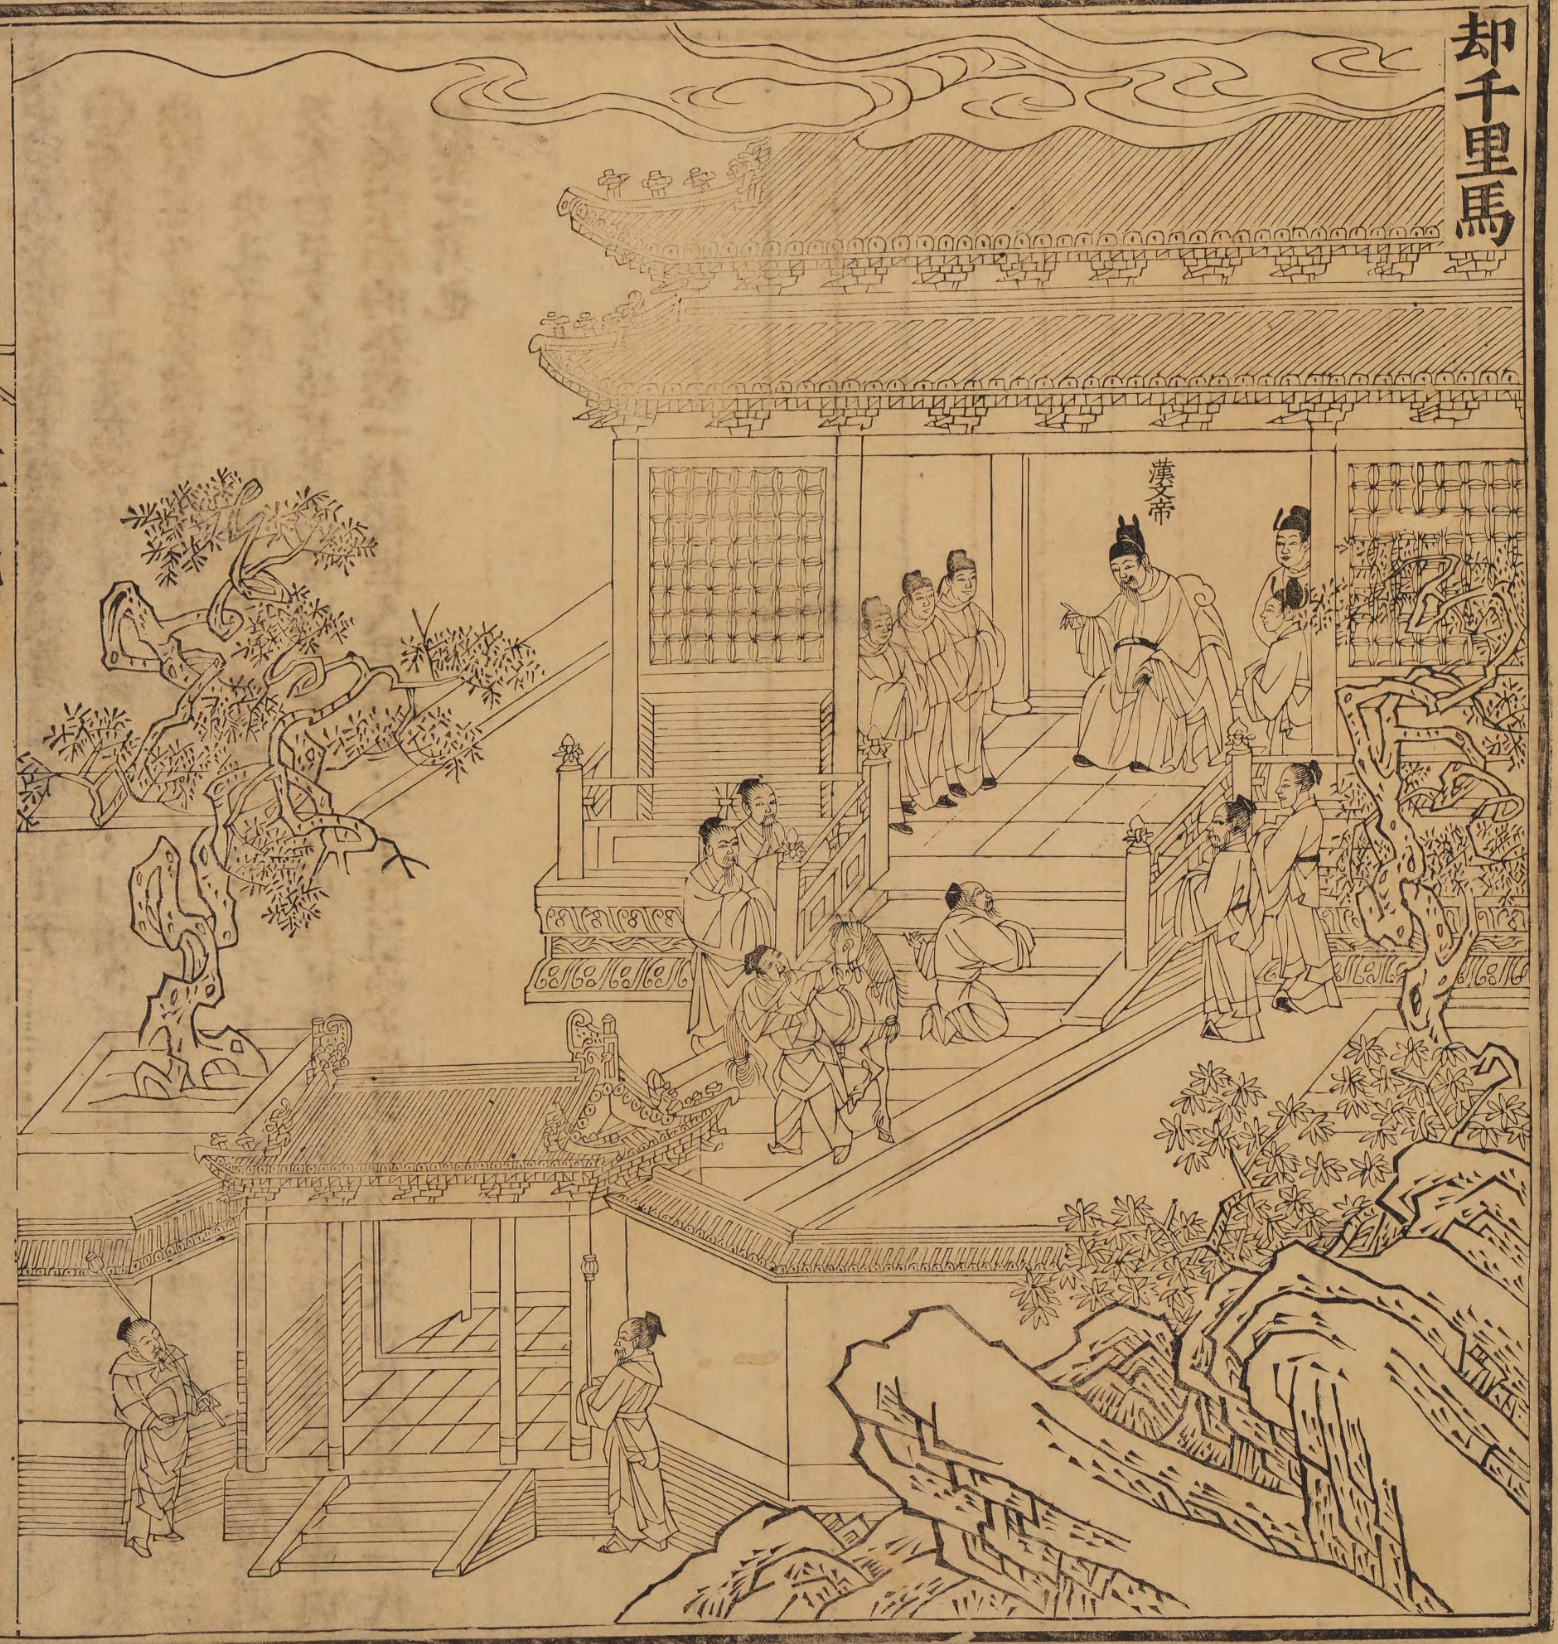 却千里馬
漢文帝